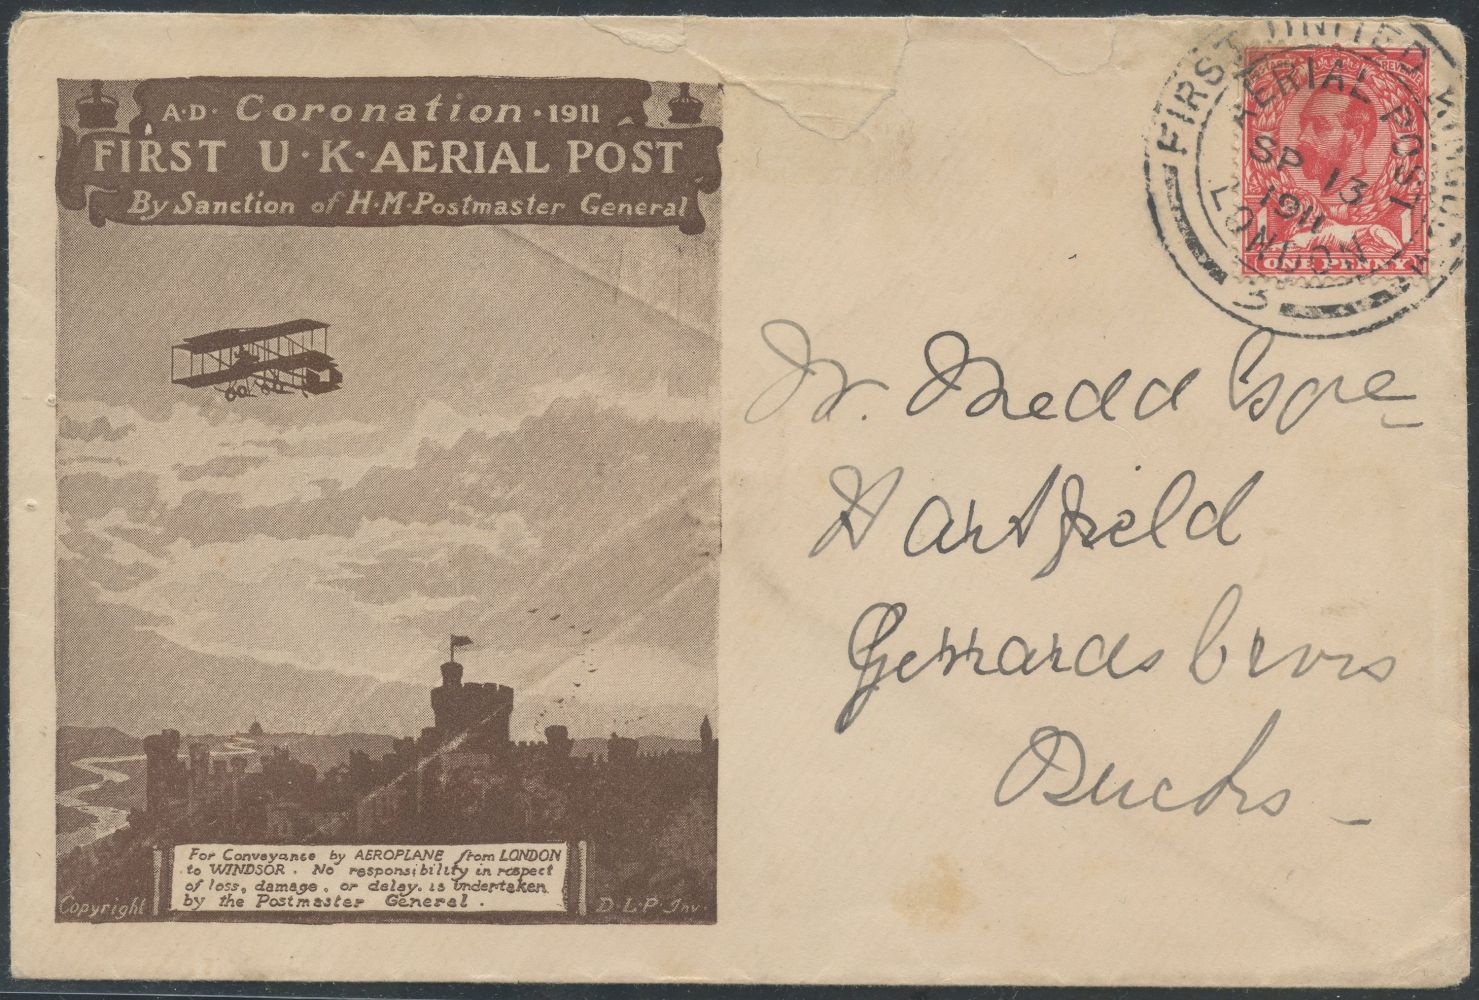 A.D. Coronation . 1911
FIRST U.K. AERIAL POST
By Sanction of H.M. Postmaster General
For Conveyance by AEROPLANE from LONDON
to WINDSOR. No responsibility in respect
of loss, damage, or delay, is undertaken
by the Postmaster General.
Copyright
D.L.P. Inv.
FIRST UNITED KINGDOM
AERIAL POST
SP 13
1911
LONDON
3
POSTAGE REVENUE
1 1
ONE PENNY
W. Medd Esqre
Hartfield
Gerrards Cross
Bucks